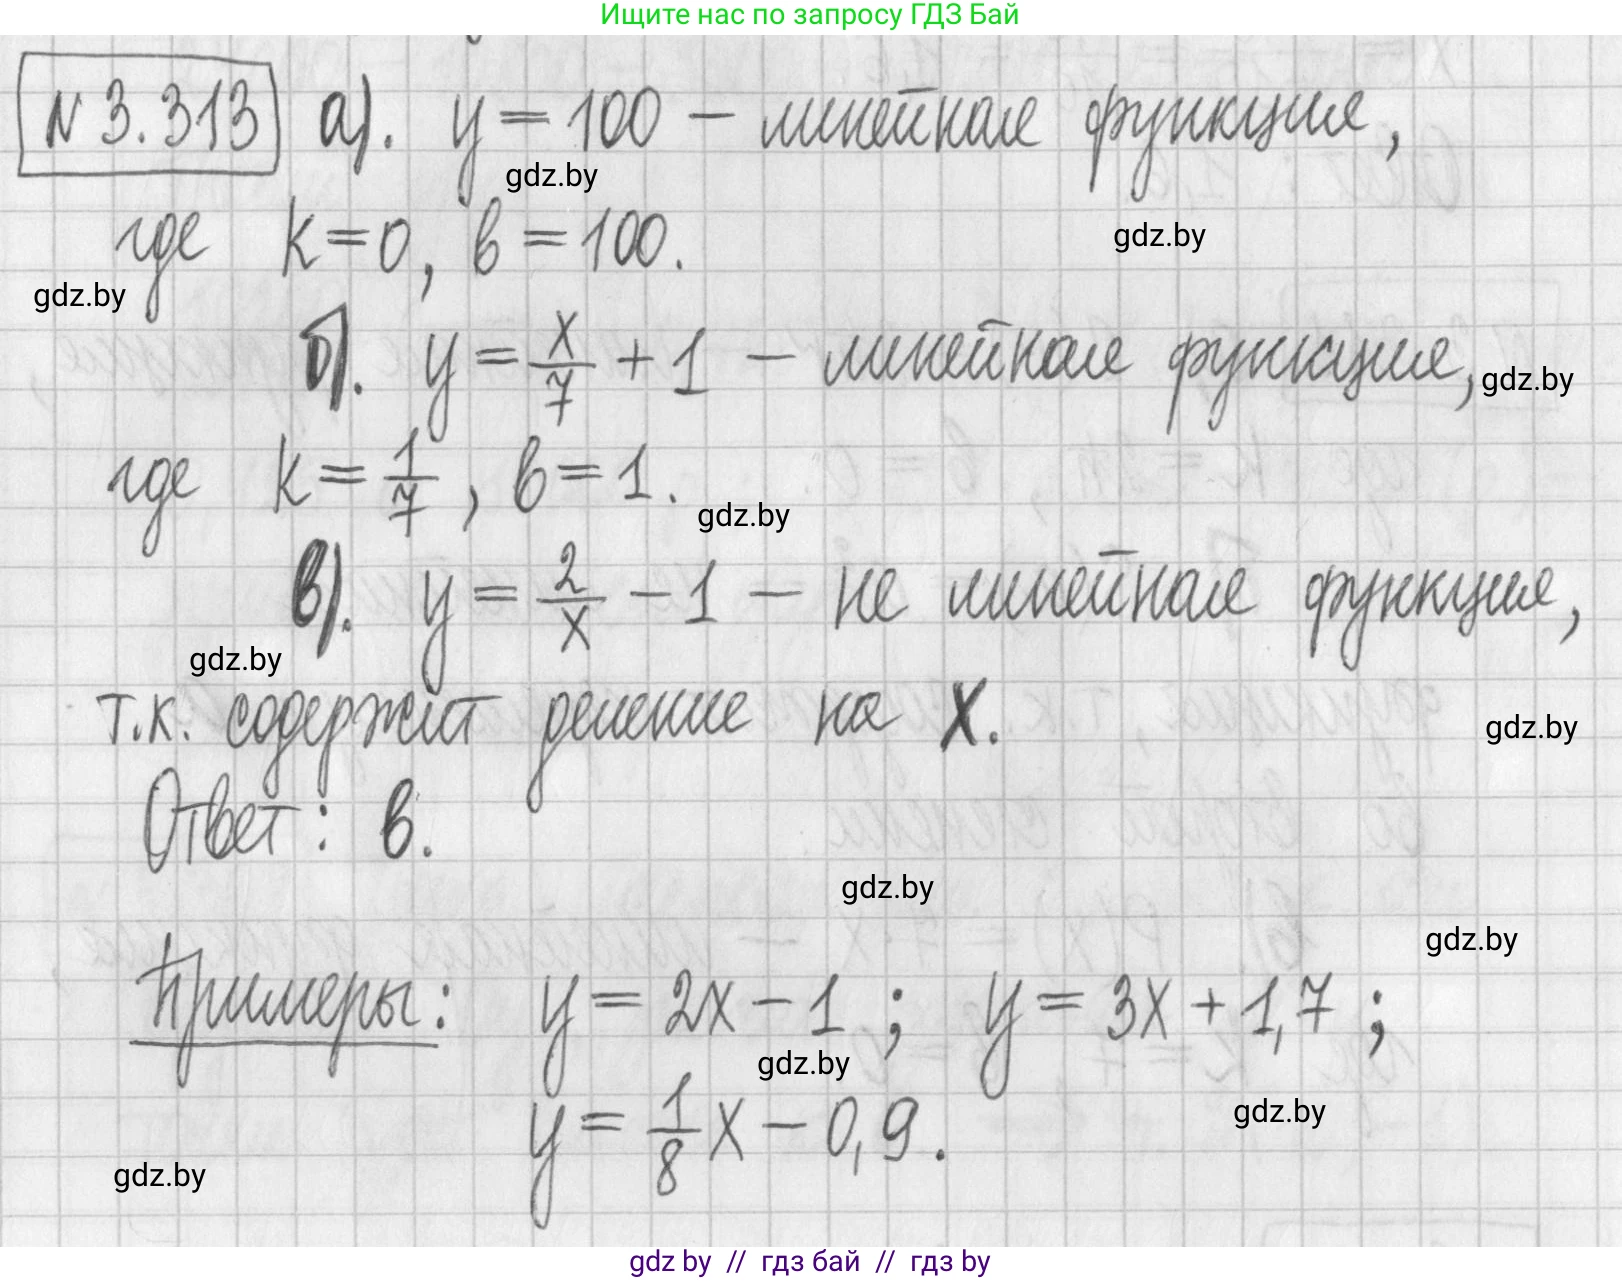 Ищите нас по запросу ГДЗ Бай
N 3.313 а). y = 100 – линейная функция,
gdz.by
где k=0, в=100.
gdz.by
gdz.by
б). y = x/7 + 1 – линейная функция,
gdz.by
где k = 1/7, в=1.
gdz.by
в). y = 2/x – 1 – не линейная функция,
gdz.by
т.к. содержит деление на x.
gdz.by
Ответ: в.
gdz.by
gdz.by
Примеры: y = 2x – 1 ; y = 3x + 1,7 ;
gdz.by
y = 1/8 x – 0,9.
gdz.by
gdz.by
gdz by // гдз бай // гдз by